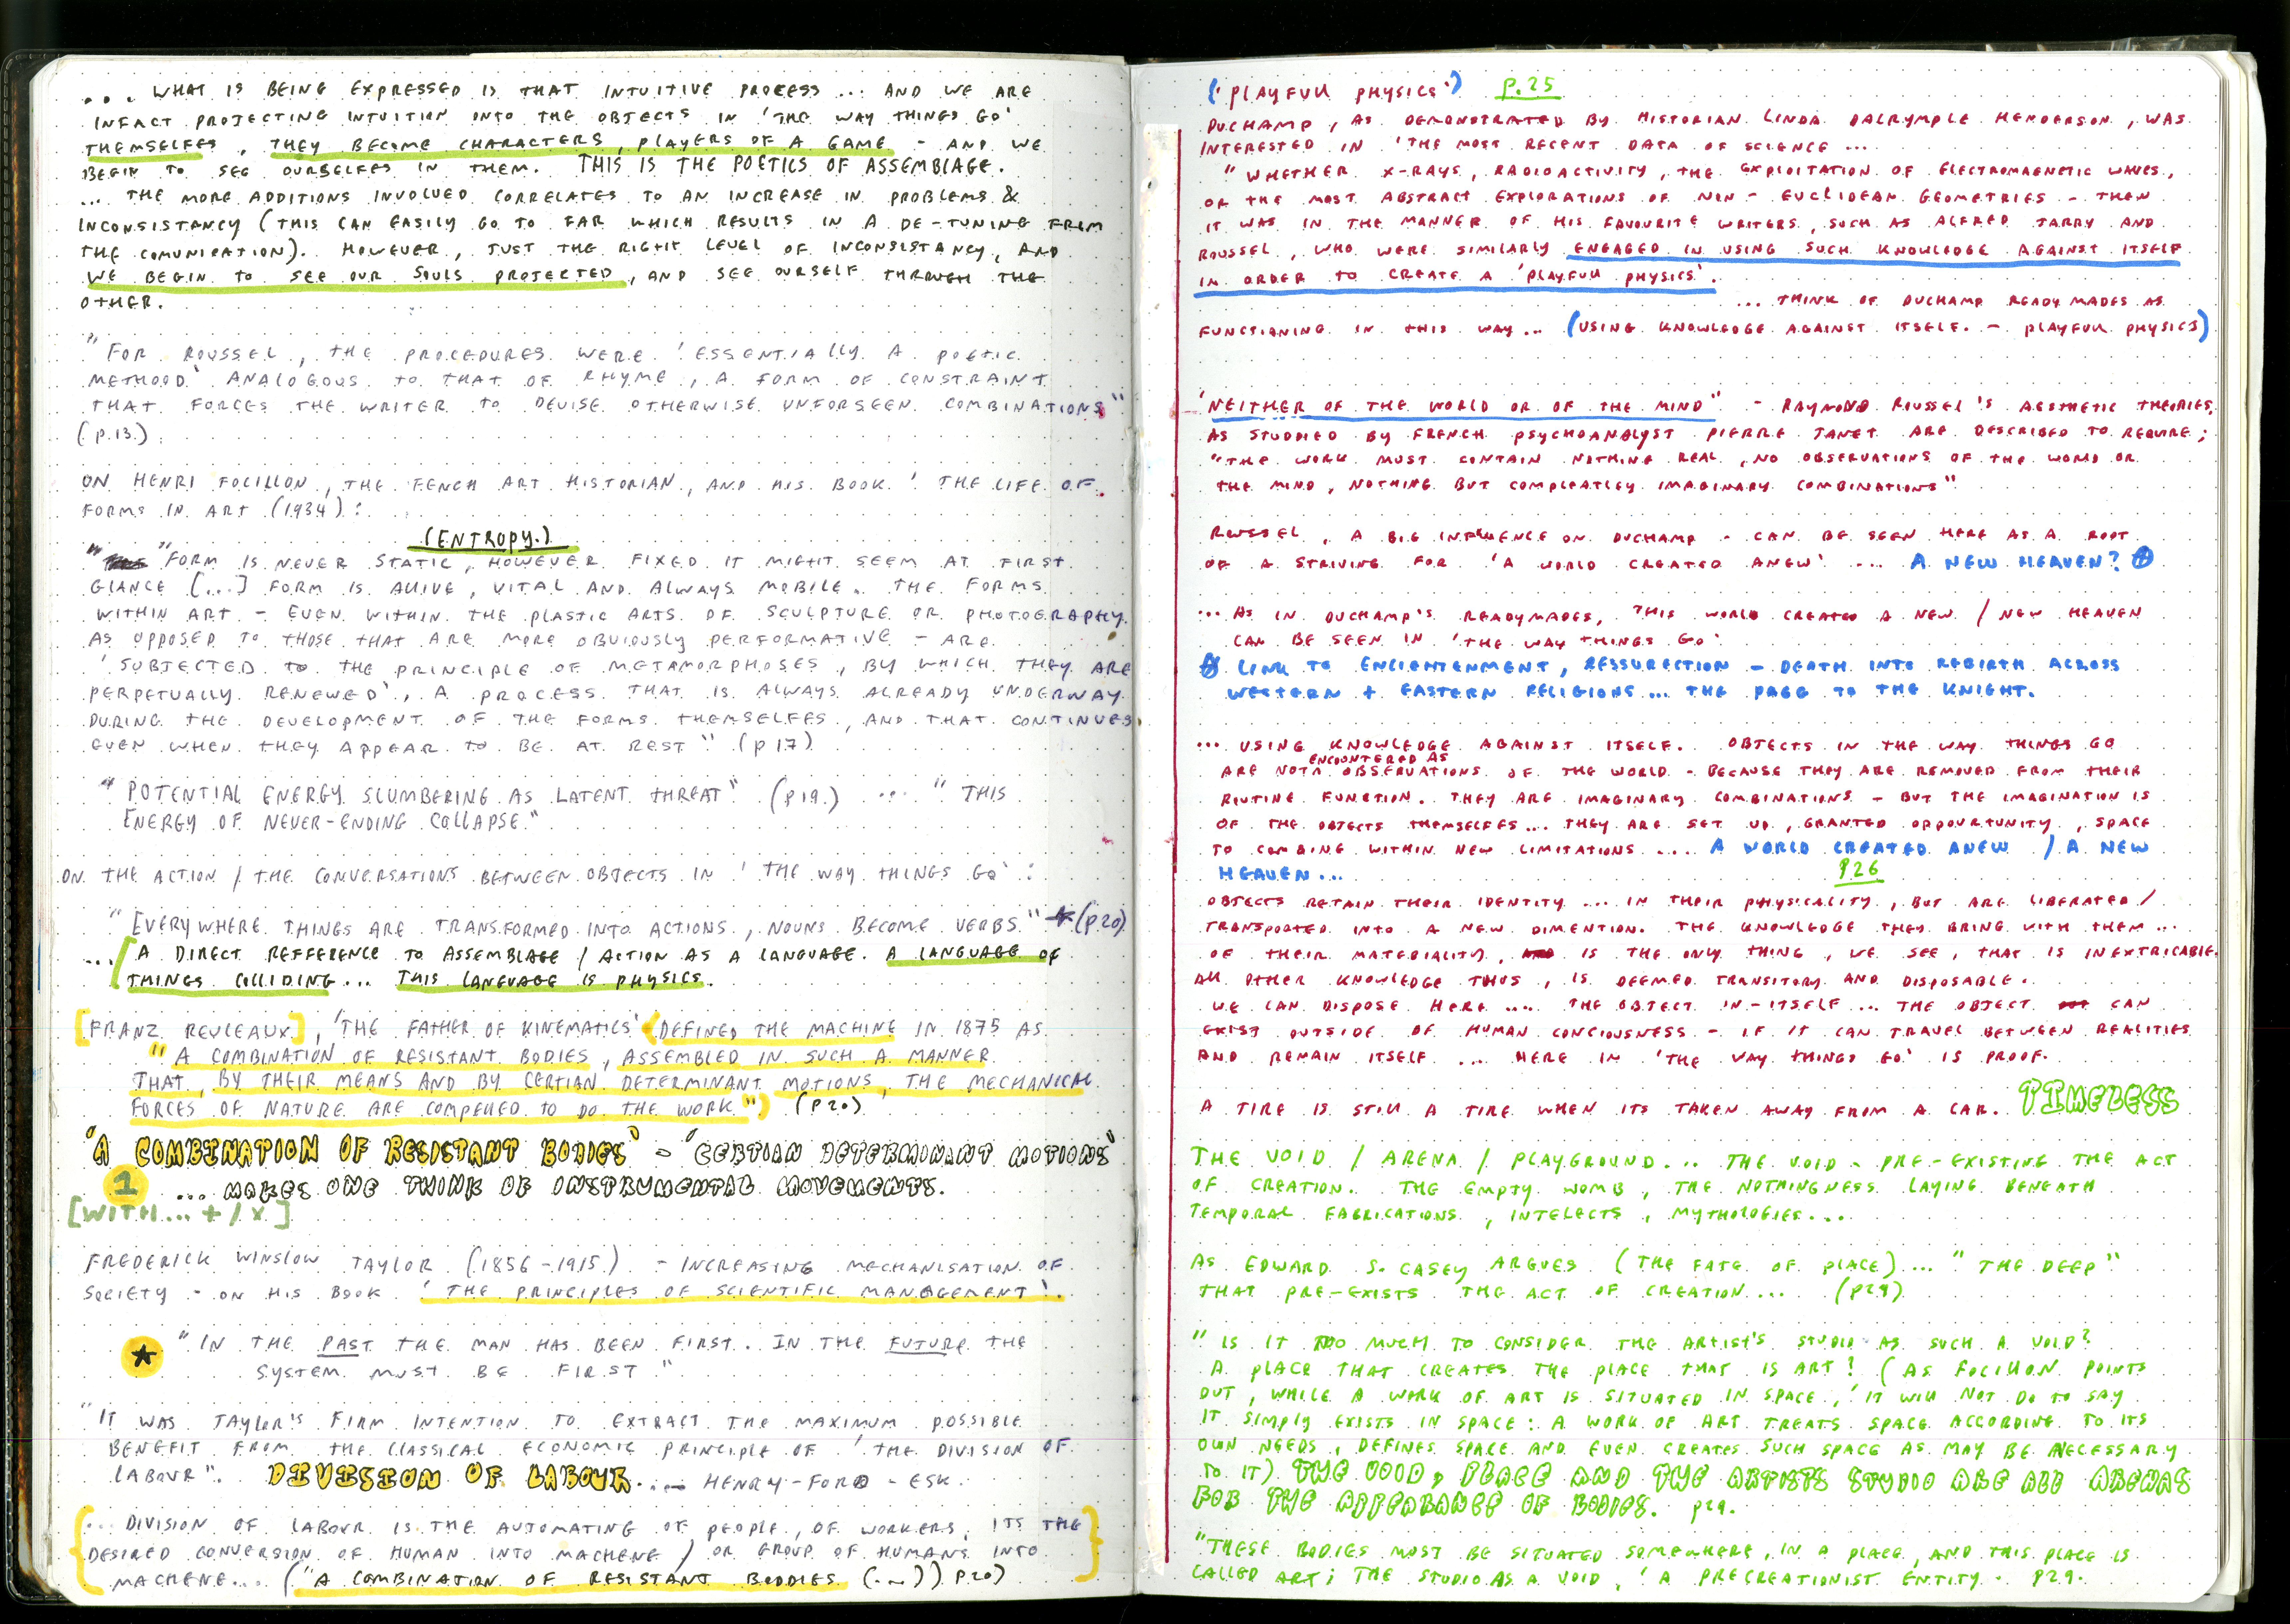 ... WHAT IS BEING EXPRESSED IS THAT INTUITIVE PROCESS ... AND WE ARE
INFACT PROJECTING INTUITION INTO THE OBJECTS IN 'THE WAY THINGS GO'
THEMSELFES, THEY BECOME CHARACTERS, PLAYERS OF A GAME - AND WE
BEGIN TO SEE OURSELFES IN THEM. THIS IS THE POETICS OF ASSEMBLAGE.
... THE MORE ADDITIONS INVOLVED CORRELATES TO AN INCREASE IN PROBLEMS &
INCONSISTANCY (THIS CAN EASILY GO TO FAR WHICH RESULTS IN A DE-TUNING FROM
THE COMUNICATION). HOWEVER, JUST THE RIGHT LEVEL OF INCONSISTANCY, AND
WE BEGIN TO SEE OUR SOULS PROJECTED, AND SEE OURSELF THROUGH THE
OTHER.
"FOR ROUSSEL, THE PROCEDURES WERE 'ESSENTIALLY A POETIC
METHOOD' ANALOGOUS TO THAT OF RHYME, A FORM OF CONSTRAINT
THAT FORCES THE WRITER TO DEVISE OTHERWISE UNFORSEEN COMBINATIONS"
(P.13.)
ON HENRI FOCILLON, THE FENCH ART HISTORIAN, AND HIS BOOK 'THE LIFE OF
FORMS IN ART (1934):
(ENTROPY.)
"FORM IS NEVER STATIC, HOWEVER FIXED IT MIGHT SEEM AT FIRST
GLANCE [...] FORM IS ALIVE, VITAL AND ALWAYS MOBILE. THE FORMS
WITHIN ART - EVEN WITHIN THE PLASTIC ARTS OF SCULPTURE OR PHOTOGRAPHY
AS OPPOSED TO THOSE THAT ARE MORE OBVIOUSLY PERFORMATIVE - ARE
'SUBJECTED TO THE PRINCIPLE OF METAMORPHOSES, BY WHICH THEY ARE
PERPETUALLY RENEWED', A PROCESS THAT IS ALWAYS ALREADY UNDERWAY
DURING THE DEVELOPMENT OF THE FORMS THEMSELFES, AND THAT CONTINUES
EVEN WHEN THEY APPEAR TO BE AT REST" (P17)
"POTENTIAL ENERGY SLUMBERING AS LATENT THREAT" (P19.) ... "THIS
ENERGY OF NEVER-ENDING COLLAPSE."
ON THE ACTION / THE CONVERSATIONS BETWEEN OBJECTS IN 'THE WAY THINGS GO':
"EVERYWHERE THINGS ARE TRANSFORMED INTO ACTIONS, NOUNS BECOME VERBS" * (P.20)
... A DIRECT REFFERENCE TO ASSEMBLAGE / ACTION AS A LANGUAGE. A LANGUAGE OF
THINGS COLLIDING... THIS LANGUAGE IS PHYSICS.
[FRANZ REULEAUX], 'THE FATHER OF KINEMATICS' (DEFINED THE MACHINE IN 1875 AS
"A COMBINATION OF RESISTANT BODIES, ASSEMBLED IN SUCH A MANNER
THAT, BY THEIR MEANS AND BY CERTIAN DETERMINANT MOTIONS, THE MECHANICAL
FORCES OF NATURE ARE COMPELLED TO DO THE WORK.") (P20)
'A COMBINATION OF RESISTANT BODIES' - 'CERTIAN DETERMINANT MOTIONS'
1 ... MAKES ONE THINK OF INSTRUMENTAL MOVEMENTS.
[WITH... + / X]
FREDERICK WINSLOW TAYLOR (1856-1915) - INCREASING MECHANISATION OF
SOCIETY - ON HIS BOOK 'THE PRINCIPLES OF SCIENTIFIC MANAGEMENT'.
★ "IN THE PAST THE MAN HAS BEEN FIRST. IN THE FUTURE THE
SYSTEM MUST BE FIRST"
"IT WAS TAYLOR'S FIRM INTENTION TO EXTRACT THE MAXIMUM POSSIBLE
BENEFIT FROM THE CLASSICAL ECONOMIC PRINCIPLE OF 'THE DIVISION OF
LABOUR". DIVISION OF LABOUR... - HENRY-FORD-ESK.
{... DIVISION OF LABOUR IS THE AUTOMATING OF PEOPLE, OF WORKERS, ITS THE
DESIRED CONVERSION OF HUMAN INTO MACHENE / OR GROUP OF HUMANS INTO
MACHENE.... ("A COMBINATION OF RESISTANT BODDIES (...)) P20)}
('PLAYFULL PHYSICS') P.25
DUCHAMP, AS DEMONSTRATED BY HISTORIAN LINDA DALRYMPLE HENDERSON, WAS
INTERESTED IN 'THE MOST RECENT DATA OF SCIENCE...
"WHETHER X-RAYS, RADIOACTIVITY, THE EXPLOITATION OF ELECTROMAGNETIC WAVES,
OR THE MOST ABSTRACT EXPLORATIONS OF NON-EUCLIDEAN GEOMETRIES - THEN
IT WAS IN THE MANNER OF HIS FAVOURITE WRITERS, SUCH AS ALFRED JARRY AND
ROUSSEL, WHO WERE SIMILARLY ENGAGED IN USING SUCH KNOWLEDGE AGAINST ITSELF
IN ORDER TO CREATE A 'PLAYFULL PHYSICS'.
... THINK OF DUCHAMP READYMADES AS
FUNCTIONING IN THIS WAY... (USING KNOWLEDGE AGAINST ITSELF. - PLAYFULL PHYSICS)
'NEITHER OF THE WORLD OR OF THE MIND" - RAYMOND ROUSSEL'S AESTHETIC THEORIES,
AS STUDDIED BY FRENCH PSYCHOANALYST PIERRE JANET ARE DESCRIBED TO REQUIRE;
"THE WORK MUST CONTAIN NOTHING REAL, NO OBSERVATIONS OF THE WORLD OR
THE MIND, NOTHING BUT COMPLEATLEY IMAGINARY COMBINATIONS"
ROUSSEL, A BIG INFLUENCE ON DUCHAMP - CAN BE SEEN HERE AS A ROOT
OF A STRIVING FOR 'A WORLD CREATED ANEW' .... A NEW HEAVEN?
... AS IN DUCHAMP'S READYMADES, THIS WORLD CREATED A NEW / NEW HEAVEN
CAN BE SEEN IN 'THE WAY THINGS GO'
LINK TO ENLIGHTENMENT, RESSURECTION - DEATH INTO REBIRTH ACROSS
WESTERN + EASTERN RELIGIONS... THE PAGE TO THE KNIGHT.
... USING KNOWLEDGE AGAINST ITSELF. OBJECTS IN THE WAY THINGS GO
ENCOUNTERED AS
ARE NOT OBSERVATIONS OF THE WORLD - BECAUSE THEY ARE REMOVED FROM THEIR
ROUTINE FUNCTION. THEY ARE IMAGINARY COMBINATIONS - BUT THE IMAGINATION IS
OF THE OBJECTS THEMSELFES... THEY ARE SET UP, GRANTED OPPOURTUNITY, SPACE
TO COMBINE WITHIN NEW LIMITATIONS .... A WORLD CREATED ANEW / A NEW
HEAVEN...
P26
OBJECTS RETAIN THEIR IDENTITY ... IN THEIR PHYSICALITY, BUT ARE LIBERATED /
TRANSPORTED INTO A NEW DIMENTION. THE KNOWLEDGE THEY BRING WITH THEM...
OF THEIR MATERIALITY, IS THE ONLY THING, WE SEE, THAT IS INEXTRICABLE.
ALL OTHER KNOWLEDGE THUS, IS DEEMED TRANSITORY AND DISPOSABLE.
WE CAN DISPOSE HERE .... THE OBJECT IN-ITSELF ... THE OBJECT CAN
EXIST OUTSIDE OF HUMAN CONCIOUSNESS - IF IT CAN TRAVEL BETWEEN REALITIES
AND REMAIN ITSELF ... HERE IN 'THE WAY THINGS GO' IS PROOF.
A TIRE IS STILL A TIRE WHEN ITS TAKEN AWAY FROM A CAR. TIMELESS
THE VOID / ARENA / PLAYGROUND... THE VOID - PRE-EXISTING THE ACT
OF CREATION. THE EMPTY WOMB, THE NOTHINGNESS LAYING BENEATH
TEMPORAL FABRICATIONS, INTELECTS, MYTHOLOGIES...
AS EDWARD S. CASEY ARGUES (THE FATE OF PLACE)... "THE DEEP"
THAT PRE-EXISTS THE ACT OF CREATION... (P29)
"IS IT TOO MUCH TO CONSIDER THE ARTIST'S STUDIO AS SUCH A VOID?
A PLACE THAT CREATES THE PLACE THAT IS ART? (AS FOCILLON POINTS
OUT, WHILE A WORK OF ART IS SITUATED IN SPACE, 'IT WILL NOT DO TO SAY
IT SIMPLY EXISTS IN SPACE: A WORK OF ART TREATS SPACE ACCORDING TO ITS
OWN NEEDS, DEFINES SPACE AND EVEN CREATES SUCH SPACE AS MAY BE NECESSARY
TO IT) THE VOID, PLACE AND THE ARTISTS STUDIO ARE ALL ARENAS
FOR THE APPEARANCE OF BODIES. P29.
"THESE BODIES MOST BE SITUATED SOMEWHERE, IN A PLACE, AND THIS PLACE IS
CALLED ART; THE STUDIO AS A VOID, 'A PRECREATIONIST ENTITY. P29.